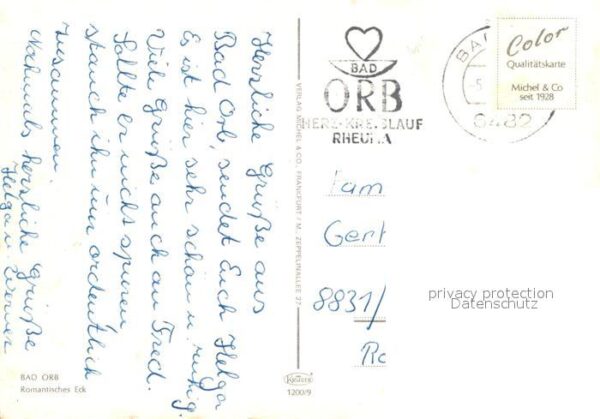 Herzliche Grüße aus
Bad Orb, sendet Euch Helga
Es ist hier sehr schön u. ruhig.
Viele Grüße auch an Fred.
Sollte er nicht spuren
stauch ihn nur ordentlich
zusammen.
Nochmals herzliche Grüße
Helga u. Werner
BAD ORB
Romantisches Eck
VERLAG MICHEL & CO., FRANKFURT / M., ZEPPELINALLEE 27
Krüger
1200/9
BAD
ORB
HERZ-KREISLAUF
RHEUMA
BA
-5.
6482
Color
Qualitätskarte
Michel & Co
seit 1928
Fam
Gert
8831/
Ro
privacy protection
Datenschutz